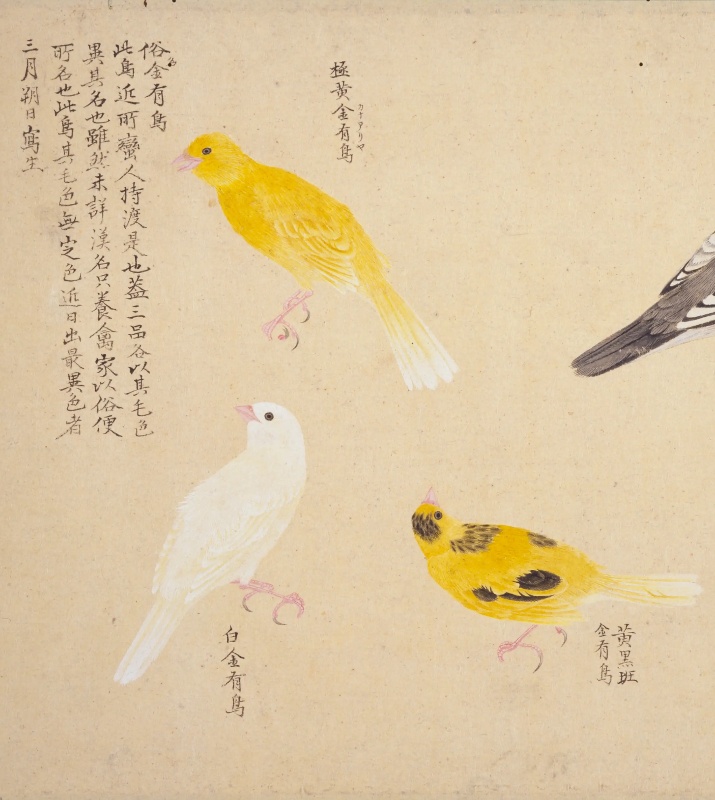 極黄金有鳥
カナアリヤ
俗金有鳥
此鳥近所蠻人持渡是也蓋三品各以其毛色
異其名也雖然未詳漢名只養禽家以俗便
所名也此鳥其毛色無定色近日出最異色者
三月朔日寫生
黄黒斑
金有鳥
白金有鳥